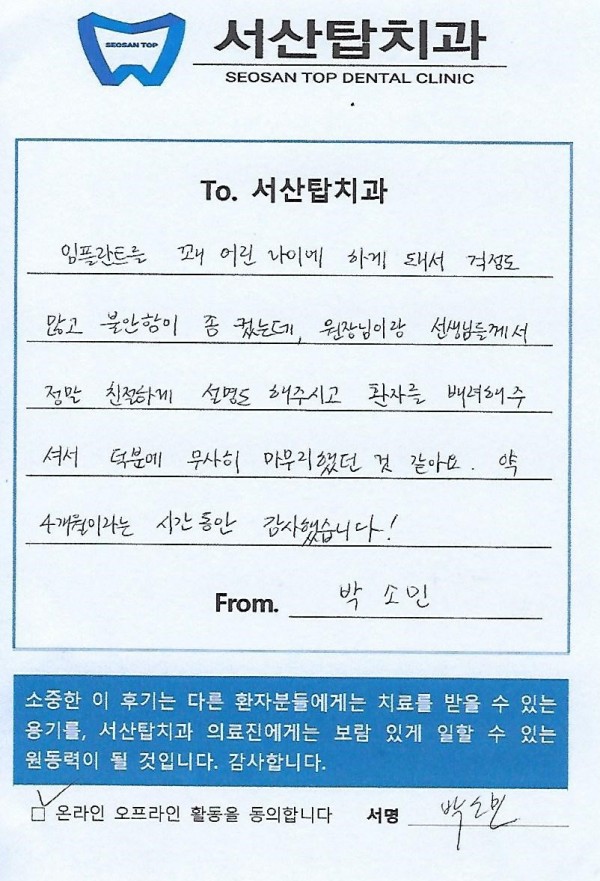 SEOSAN TOP
서산탑치과
SEOSAN TOP DENTAL CLINIC
To. 서산탑치과
임플란트를 꽤 어린 나이에 하게 돼서 걱정도
많고 불안함이 좀 컸는데, 원장님이랑 선생님들께서
정말 친절하게 설명도 해주시고 환자를 배려해주
셔서 덕분에 무사히 마무리했던 것 같아요. 약
4개월이라는 시간 동안 감사했습니다!
From. 박소민
소중한 이 후기는 다른 환자분들에게는 치료를 받을 수 있는
용기를, 서산탑치과 의료진에게는 보람 있게 일할 수 있는
원동력이 될 것입니다. 감사합니다.
온라인 오프라인 활동을 동의합니다 서명 박소민